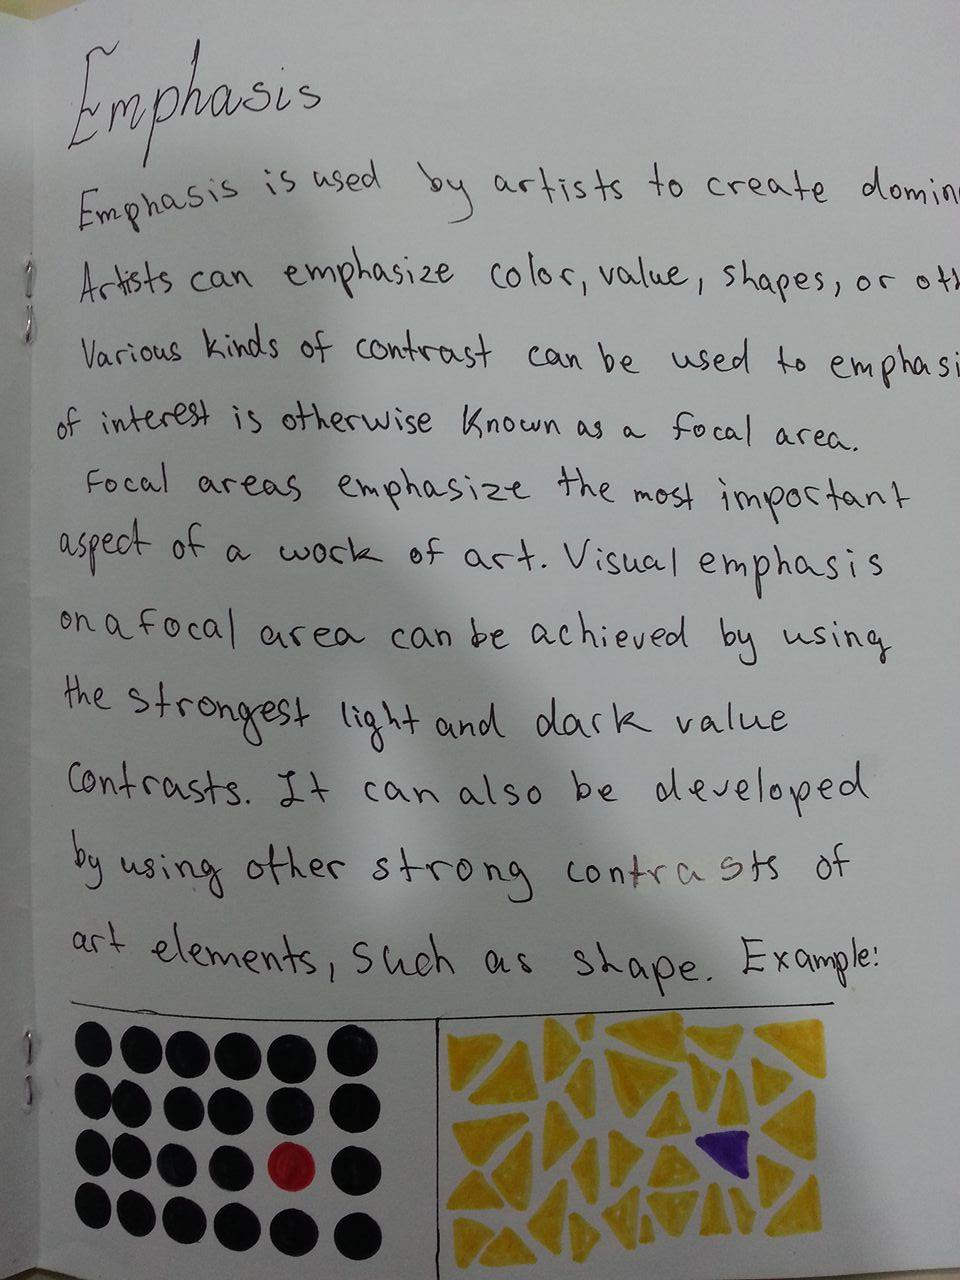 Emphasis
Emphasis is used by artists to create
Artists can emphasize color, value, shapes, or
Various kinds of contrast can be used to
of interest is otherwise known as a focal area.
Focal areas emphasize the most important
aspect of a work of art. Visual emphasis
on a focal area can be achieved by using
the strongest light and dark value
contrasts. It can also be developed
by using other strong contrasts of
art elements, such as shape. Example: